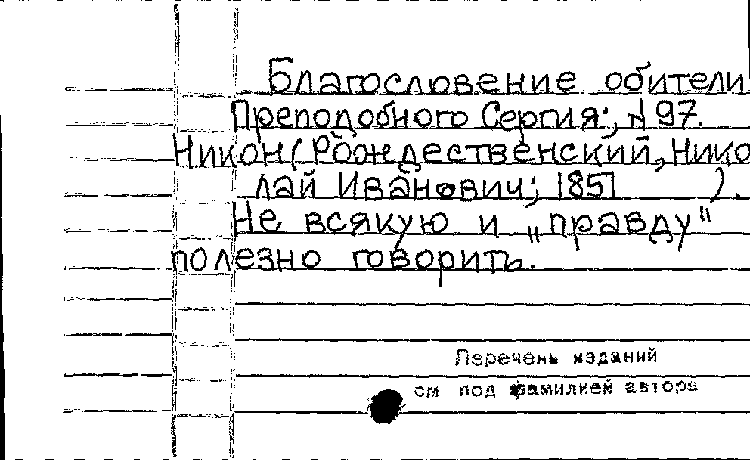 Благословение обители
Преподобного Сергия:, № 97.
Никон (Рождественский, Нико
лай Иванович; 1851 ).
Не всякую и „правду"
полезно говорить.
Перечень изданий
см под фамилией автора